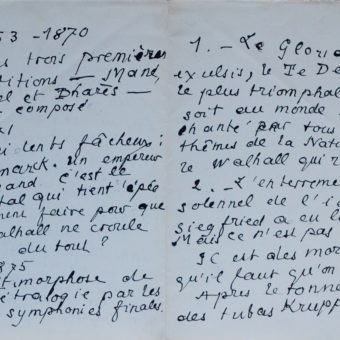 53 - 1870
u trois premières
ditions — Mane,
el et Pharès —
composé
s
idents fâcheux :
marck. Un empereur
and c'est le
tal qui tient l'épée
ment faire pour que
alhall ne croule
du tout ?
875
timorphose de
étralogie par les
symphonies finales.
1. - Le Gloria
exulsis, le Te De
le plus triomphal
soit au monde
chanté par tous
thèmes de la Natu
le Walhall qui r
2. - L'enterrem
solennel de l'i
Siegfried a eu l
Mais ce n'est pas
IC est des mor
qu'il faut qu'on
Après le tonne
des tubas Krupp